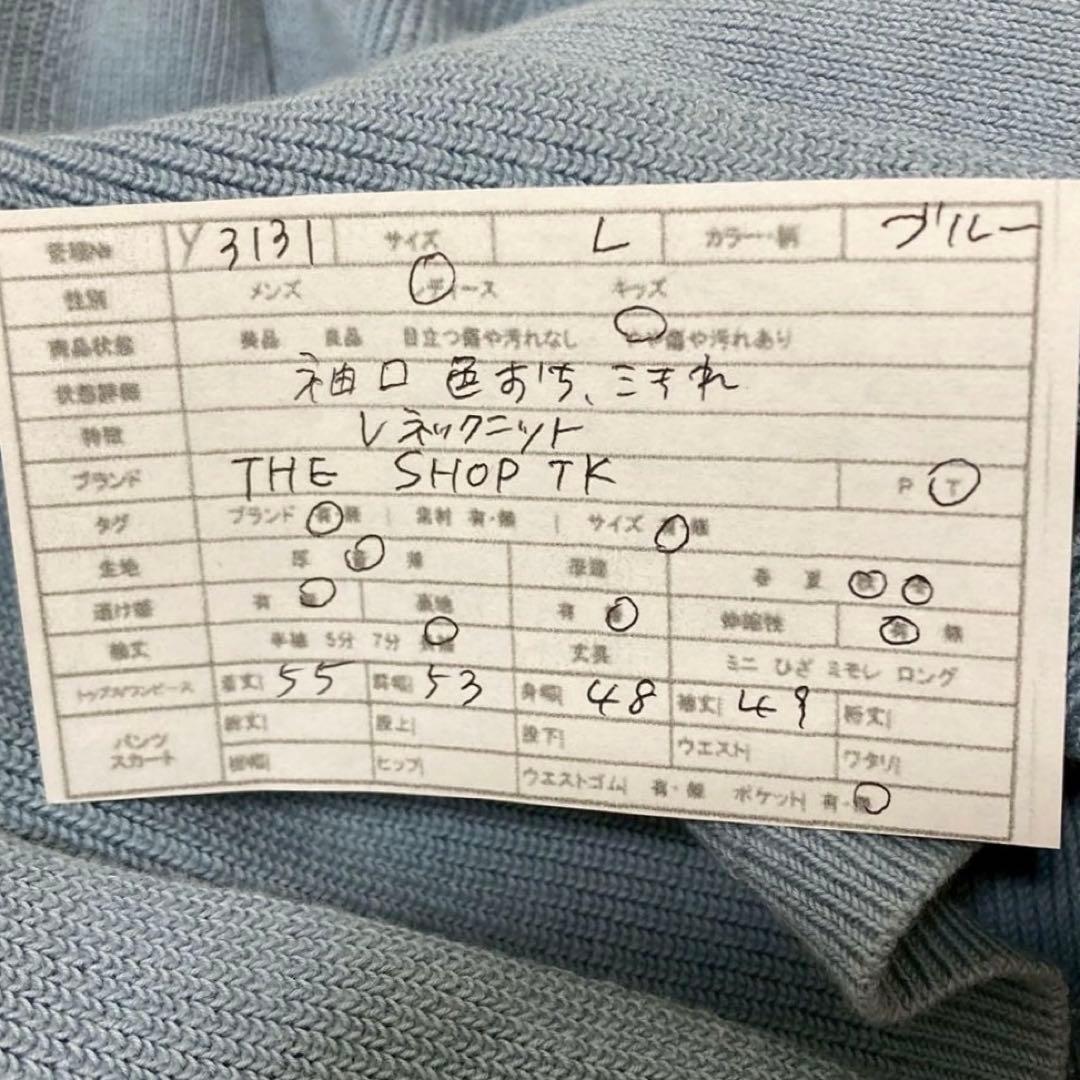 管理№ Y 3131 サイズ L カラー・柄 ブルー
性別 メンズ レディース キッズ
商品状態 美品 良品 目立つ傷や汚れなし やや傷や汚れあり
状態詳細 袖口 色おち、こすれ
特徴 Vネックニット
ブランド THE SHOP TK P T
タグ ブランド 有・無 | 素材 有・無 | サイズ 有・無
生地 厚 普 薄 季節 春 夏 秋 冬
透け感 有 無 裏地 有 無 伸縮性 有 無
袖丈 半袖 5分 7分 長袖 丈長 ミニ ひざ ミモレ ロング
トップス/ワンピース 着丈| 55 肩幅| 53 身幅| 48 袖丈| 49 裄丈|
パンツ スカート 総丈| 股上| 股下| ウエスト| ワタリ|
裾幅| ヒップ| ウエストゴム| 有・無 ポケット| 有・無